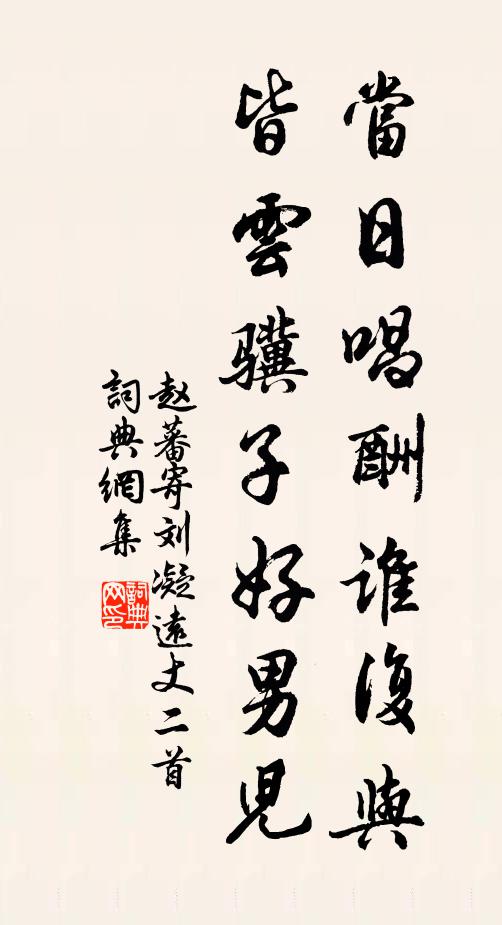 當日唱酬誰復與
皆雲驥子好男兒
赵蕃寄刘凝遠丈二首
詞典網集
詞典
网印